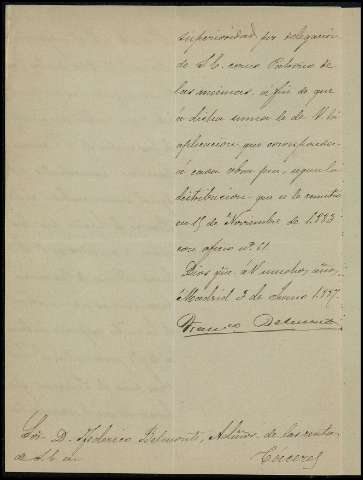 superioridad, por delegación
de S. E. como Patrono de
las mismas, a fin de que
á dicha suma le dé V. la
aplicacion que corresponde
á cada obra pia, segun la
distribucion que se le remitio
en 15 de Noviembre de 1.883
con oficio nº 61
Dios gúe. á V. muchos años,
Madrid 3 de Junio 1.887.
Belmonte
Sor. D. Federico Belmonte, Admor. de las rentas
de S. E. en Cáceres